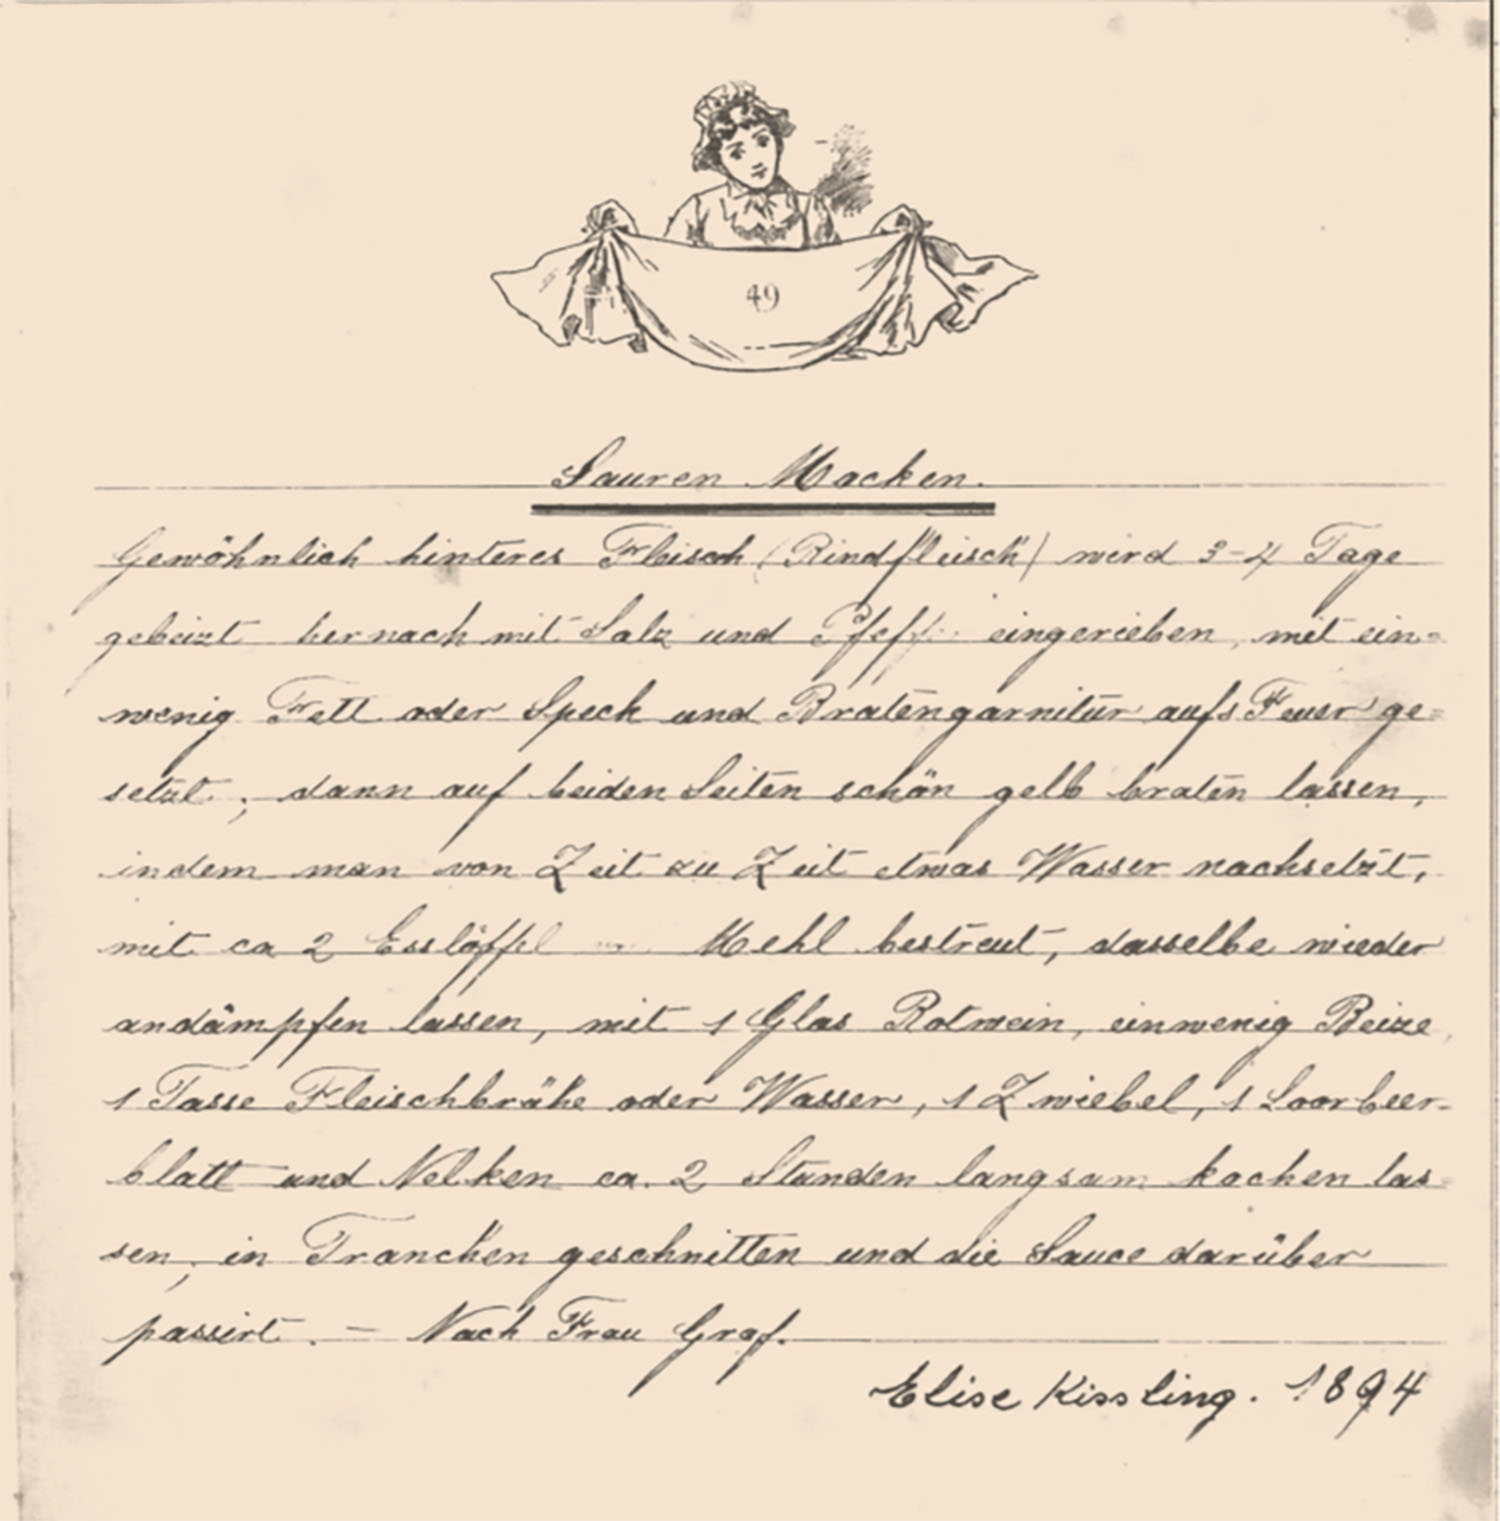 49
Sauren Mocken.
Gewöhnlich hinteres Fleisch (Rindfleisch) wird 3-4 Tage
gebeizt hernach mit Salz und Pfeffer eingerieben, mit ein=
wenig Fett oder Speck und Bratengarnitur aufs Feuer ge=
setzt; dann auf beiden Seiten schön gelb braten lassen,
indem man von Zeit zu Zeit etwas Wasser nachsetzt,
mit ca 2 Esslöffel Mehl bestreut, dasselbe wieder
andämpfen lassen, mit 1 Glas Rotwein, einwenig Beize,
1 Tasse Fleischbrühe oder Wasser, 1 Zwiebel, 1 Loorbeer-
blatt und Nelken ca. 2 Stunden langsam kochen las=
sen; in Tranchen geschnitten und die Sauce darüber
passirt. — Nach Frau Graf.
Elise Kissling. 1894